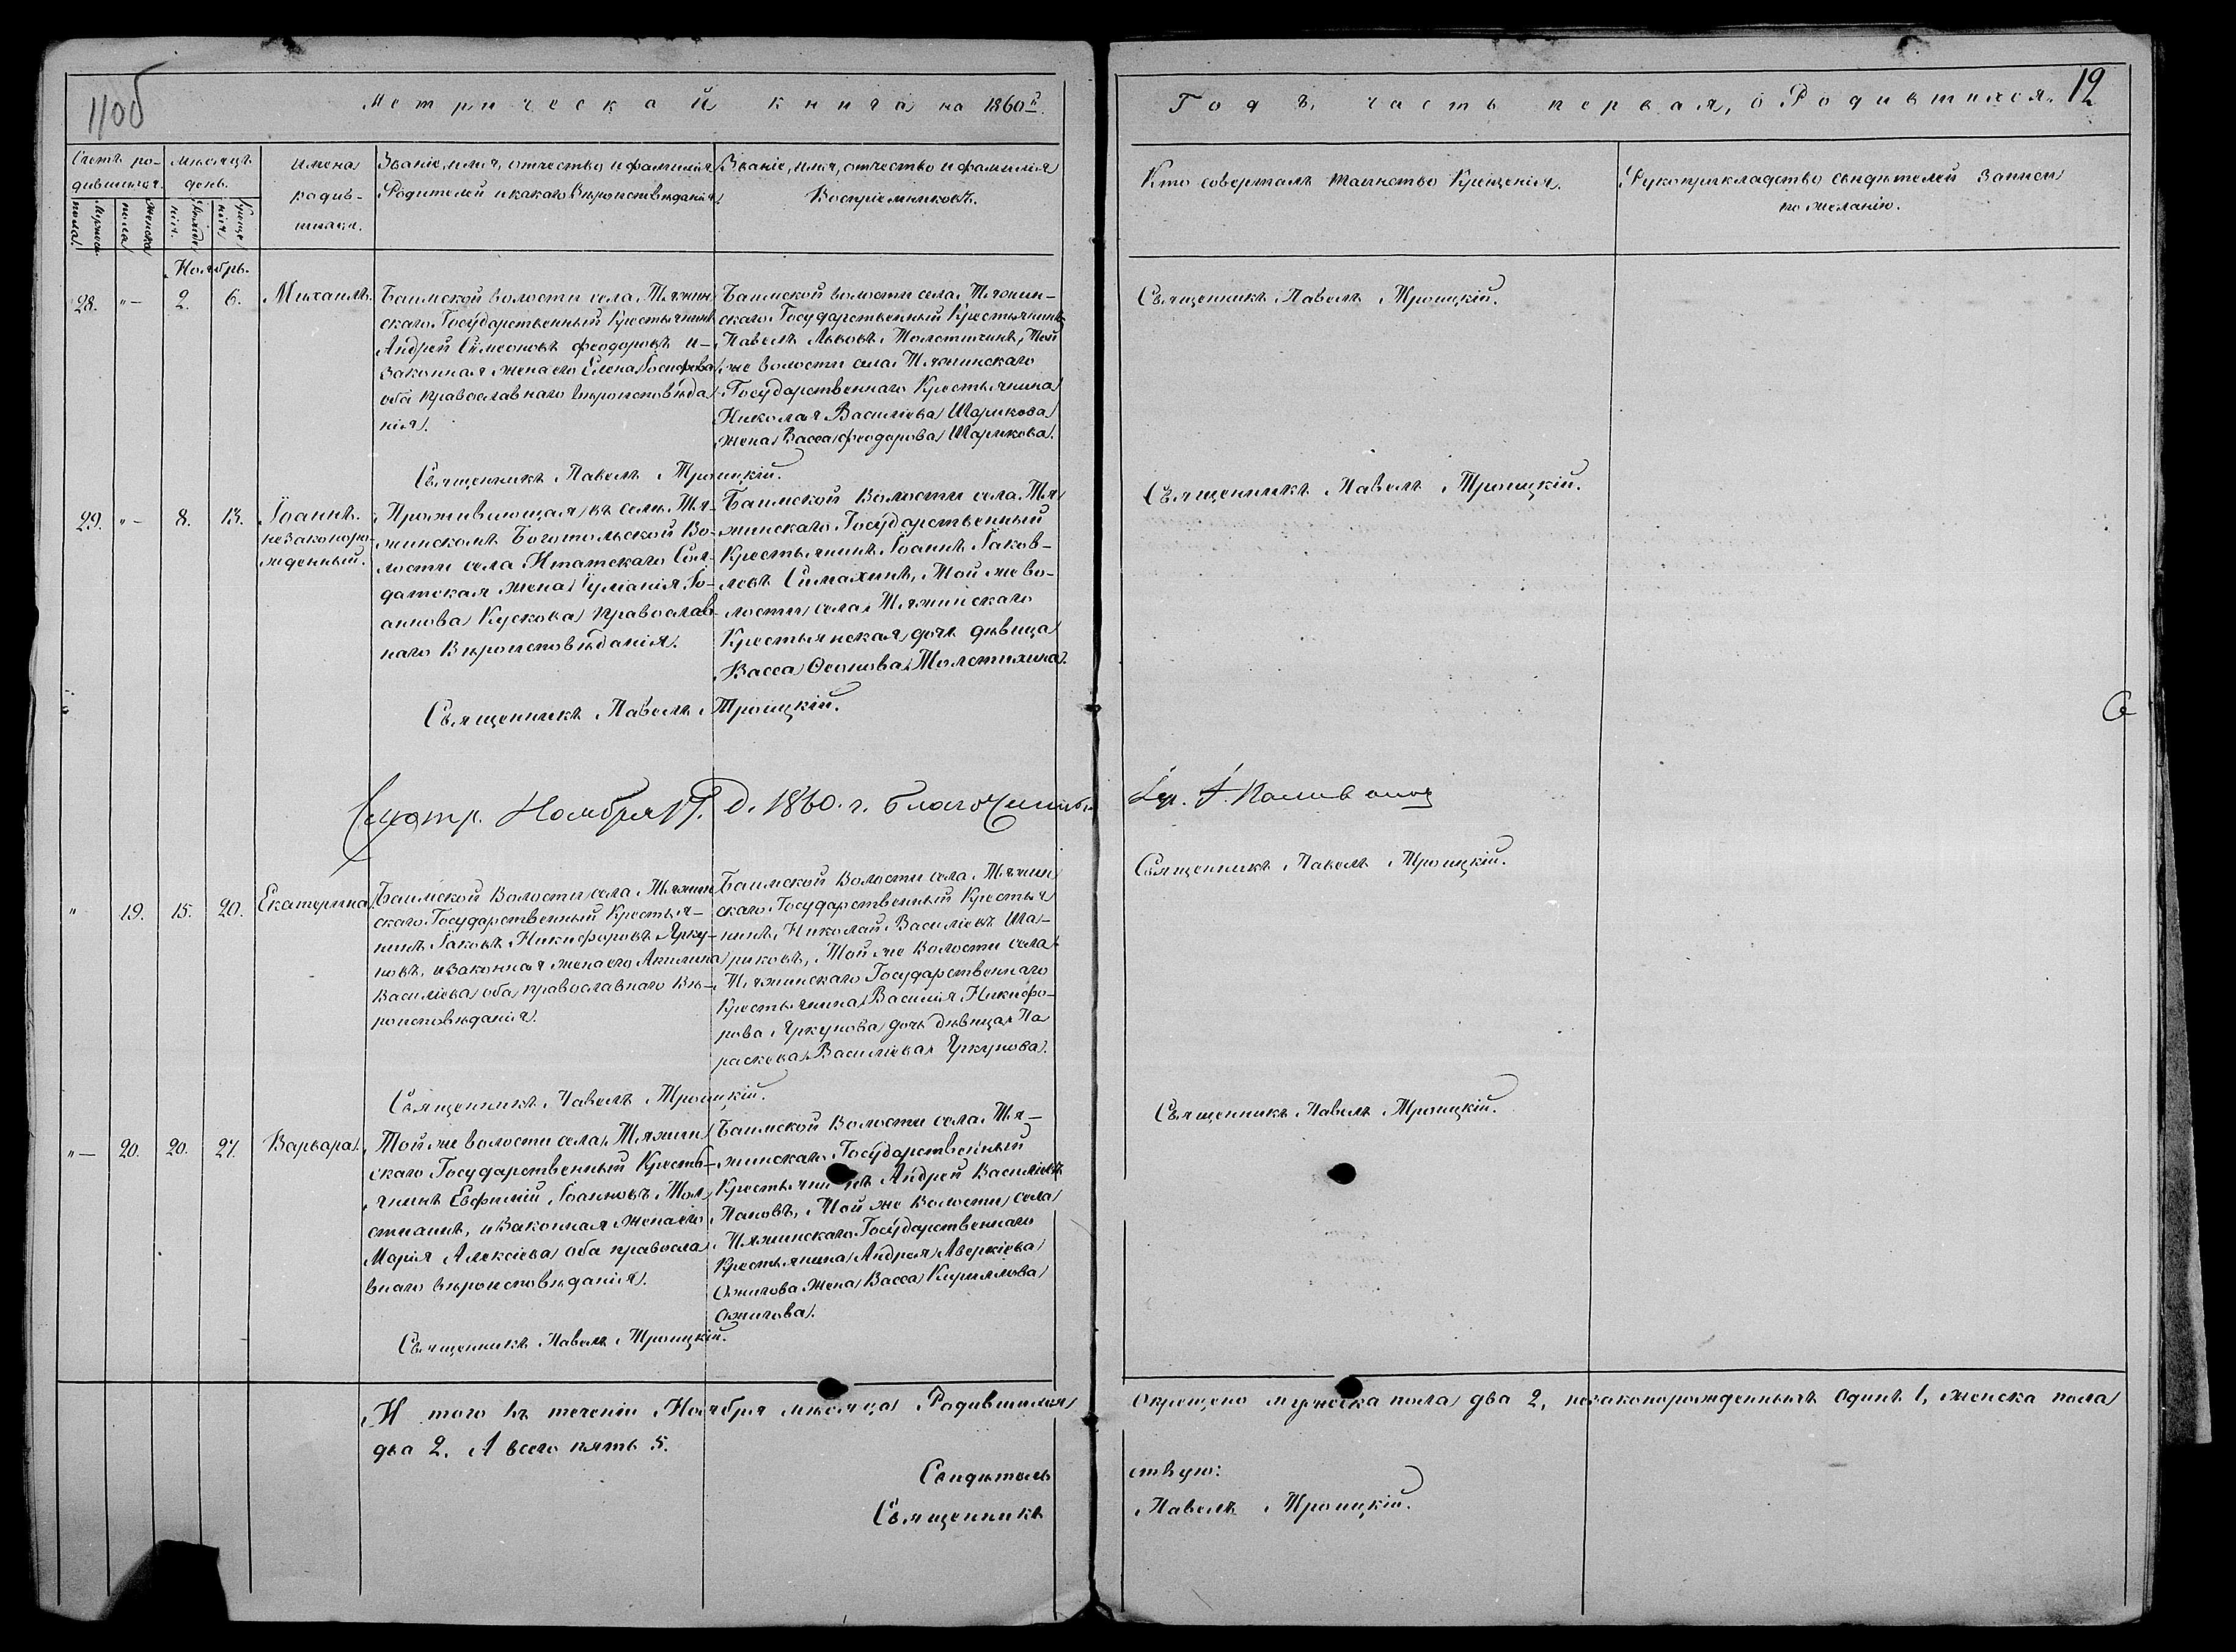 110об
Метрической книга на 1860й
Годъ, часть первая, о Родившихся.
12
Счетъ ро-
дившихся.
мѣсяцъ
день.
имена
родив-
шихся.
Званіе, имя, отчество и фамилія
Родителей и какого Вѣроисповѣданія
Званіе, имя, отчество и фамилія
Воспріемниковъ.
Кто совершалъ таинство Крещенія.
Рукоприкладство свидѣтелей записи
по желанію.
мужеска
пола
женска
пола
рожде
нія.
креще
нія
Ноябрь.
28. "— 2. 6. Михаилъ.
Баимской волости села Тяжин
скаго Государственный Крестьянинъ
Андрей Сѵмеоновъ Феодоровъ и
законная жена его Елена Іосифова
оба православнаго вѣроисповѣда
нія.
Баимской волости села Тяжин-
скаго Государственный Крестьянинъ
Павелъ Львовъ Толстихинъ, Той
же волости села Тяжинскаго
Государственнаго Крестьянина
Николая Василіева Шарикова
жена Васса Феодорова Шарикова.
Священникъ Павелъ Троицкій.
Священникъ Павелъ Троицкій.
29. "— 8. 13. Іоаннъ.
незаконоро-
жденный.
Проживающая въ селѣ Тя-
жинскомъ Боготольской Во-
лости села Итатскаго Сол-
датская жена Іуліанія Іо-
аннова Кускова православ-
наго Вѣроисповѣданія.
Баимской Волости села Тя
жинскаго Государственный
Крестьянинъ Іоаннъ Іаков-
левъ Симахинъ, Той же во-
лости села Тяжинскаго
Крестьянская дочь дѣвица
Васса Осопова Толстихина.
Священникъ Павелъ Троицкій.
Священникъ Павелъ Троицкій.
Смотр. Ноября 17. д. 1860. г. Благочинный
" 19. 15. 20. Екатерина
Баимской Волости села Тяжин
скаго Государственный Крестья-
нинъ Іаковъ Никифоровъ Ярку-
новъ, и законная жена его Акилина
Василіева оба православнаго Вѣ-
роисповѣданія.
Баимской Волости села Тяжин
скаго Государственный Крестья
нинъ, Николай Василіевъ Ша-
риковъ, Той же Волости села
Тяжинскаго Государственнаго
Крестьянина Василія Никифо-
рова Яркунова дочь дѣвица Па
раскева Василіева Яркунова.
Священникъ Павелъ Троицкій.
Священникъ Павелъ Троицкій.
"— 20. 20. 27. Варвара.
Той же волости села Тяжин
скаго Государственный Кресть-
янинъ Евфимій Іоанновъ Тол
стихинъ, и Законная жена его
Марія Алексіева оба правосла
внаго вѣроисповѣданія.
Баимской Волости села Тя-
жинскаго Государственный
Крестьянинъ Андрей Василіевъ
Поповъ, Той же Волости села
Тяжинскаго Государственнаго
Крестьянина Андрея Аверкіева
Ожигова Жена Васса Кириллова
Ожигова.
Священникъ Павелъ Троицкій.
Священникъ Павелъ Троицкій.
И того въ теченіи Ноября мѣсяца Родившихся окрещено мужеска пола два 2, незаконорожденныхъ одинъ 1, женска пола
два 2. А всего пять 5.
Свидѣтельствую:
Священникъ Павелъ Троицкій.